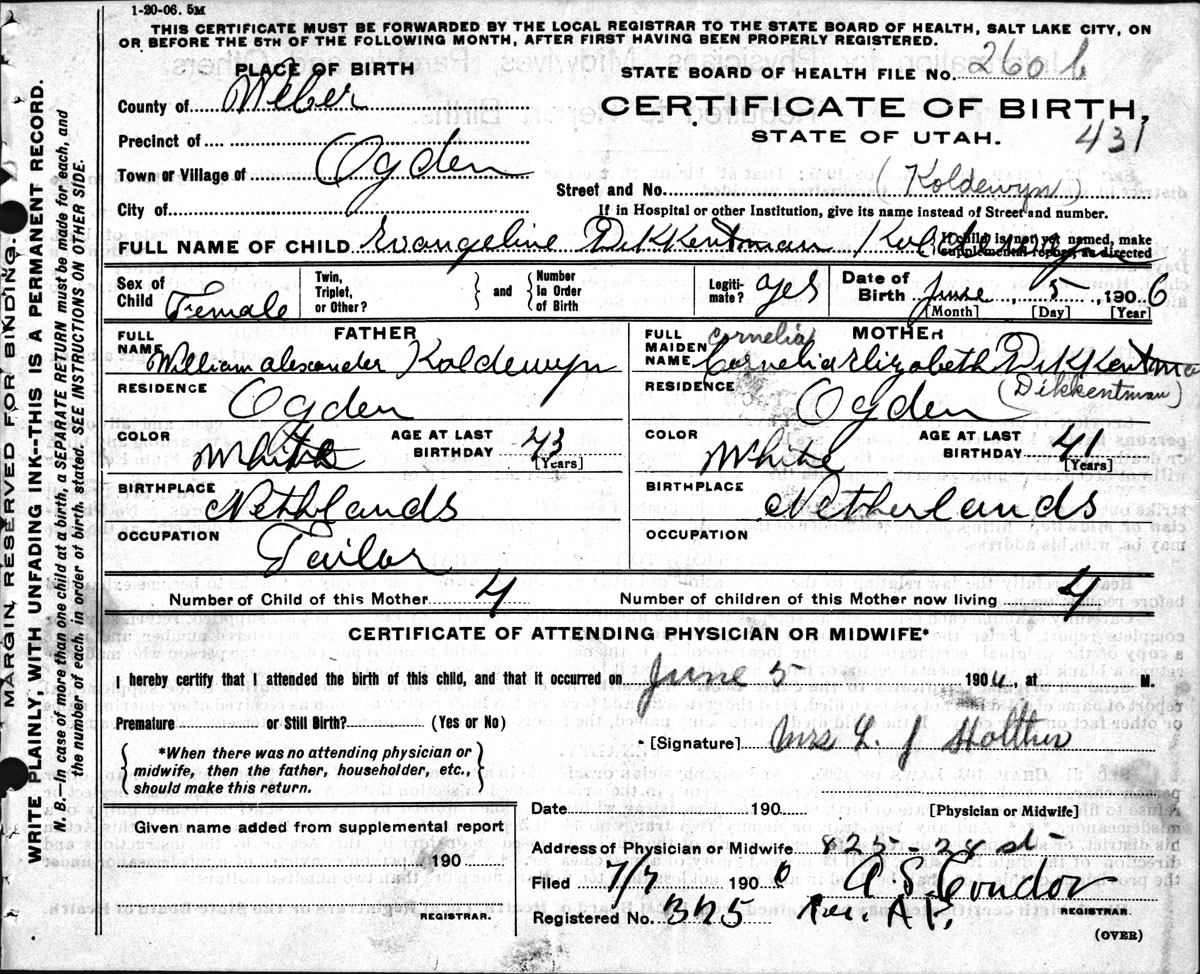 1-20-06. 5M
THIS CERTIFICATE MUST BE FORWARDED BY THE LOCAL REGISTRAR TO THE STATE BOARD OF HEALTH, SALT LAKE CITY, ON
OR BEFORE THE 5TH OF THE FOLLOWING MONTH, AFTER FIRST HAVING BEEN PROPERLY REGISTERED.
MARGIN RESERVED FOR BINDING.
WRITE PLAINLY, WITH UNFADING INK--THIS IS A PERMANENT RECORD.
N. B.—In case of more than one child at a birth, a SEPARATE RETURN must be made for each, and
the number of each, in order of birth, stated. SEE INSTRUCTIONS ON OTHER SIDE.
PLACE OF BIRTH
County of Weber
Precinct of
Town or Village of Ogden
City of
STATE BOARD OF HEALTH FILE NO. 260
CERTIFICATE OF BIRTH,
STATE OF UTAH.
431
Street and No. (Koldewyn)
If in Hospital or other Institution, give its name instead of Street and number.
FULL NAME OF CHILD Evangeline DiKKentman Koldewyn
If child is not yet named, make
supplemental report, as directed
Sex of Child Female
Twin, Triplet, or Other? } and { Number in Order of Birth
Legitimate? yes
Date of Birth June, 5, 1906
[Month] [Day] [Year]
FATHER
FULL NAME William alexander Koldewyn
RESIDENCE Ogden
COLOR White
AGE AT LAST BIRTHDAY 43 [Years]
BIRTHPLACE Nethlands
OCCUPATION Tailor
MOTHER
Cornelia
FULL MAIDEN NAME Cornelia Elizabeth DiKKentma
(Dikkentman)
RESIDENCE Ogden
COLOR White
AGE AT LAST BIRTHDAY 41 [Years]
BIRTHPLACE Netherlands
OCCUPATION
Number of Child of this Mother 4
Number of children of this Mother now living 4
CERTIFICATE OF ATTENDING PHYSICIAN OR MIDWIFE*
I hereby certify that I attended the birth of this child, and that it occurred on June 5 190, at M.
Premature or Still Birth? (Yes or No)
*When there was no attending physician or
midwife, then the father, householder, etc.,
should make this return.
[Signature] Mrs L. J
Date 190
[Physician or Midwife]
Given name added from supplemental report
190
REGISTRAR.
Address of Physician or Midwife 825-28 st
Filed 7/7 190
A S Condor
Per. A P.
REGISTRAR.
Registered No. 325
(OVER)